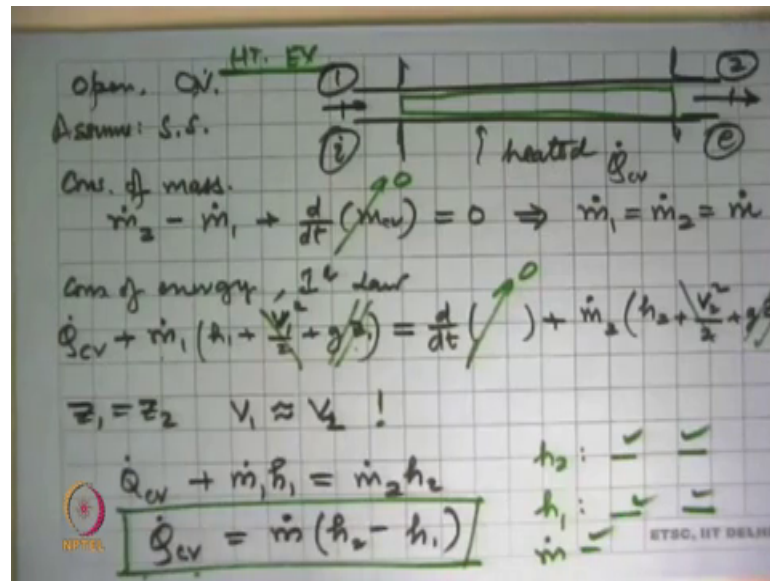 HT. EX
Open. C.V. ① ②
Assume: S.S. ⓘ heated Q̇cv ⓔ
Cons. of mass.
ṁ₂ - ṁ₁ + d/dt (mcv) = 0 ⇒ ṁ₁ = ṁ₂ = ṁ
0
Cons of energy, 1st Law
0
Q̇cv + ṁ₁ (h₁ + V₁²/2 + gz₁) = d/dt ( ) + ṁ₂ (h₂ + V₂²/2 + gz
z₁ = z₂ V₁ ≈ V₂ !
Q̇cv + ṁ₁h₁ = ṁ₂h₂
Q̇cv = ṁ (h₂ - h₁)
h₂:
h₁:
ṁ
NPTEL
ETSC, IIT DELHI